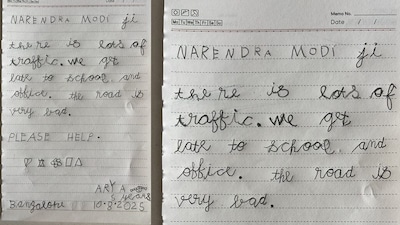 NARENDRA MODI ji
there is lots of
traffic. we get
late to school and
office. the road is
very bad.
PLEASE HELP.
ARYA
5 years
Bangalore 10.8.2025
Memo No.
Mo Tu We Th Fr Sa Su
Date / /
NARENDRA MODI ji
there is lots of
traffic. we get
late to school and
office. the road is
very bad.